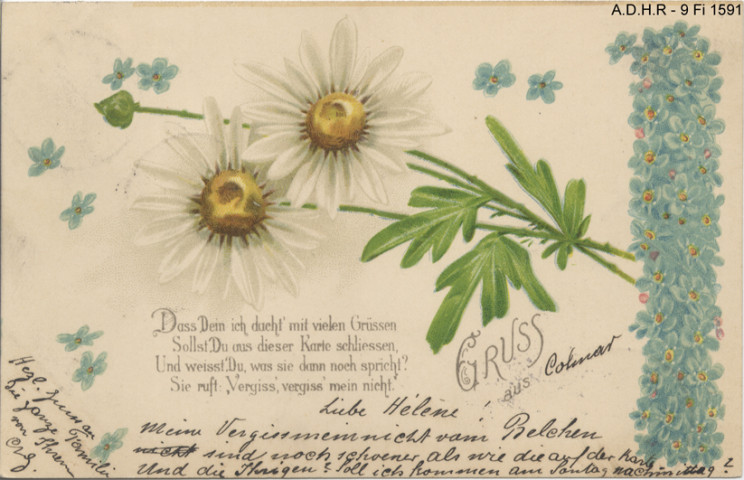 A.D.H.R - 9 Fi 1591
Dass Dein ich dacht' mit vielen Grüssen
Sollst Du aus dieser Karte schliessen,
Und weisst Du, was sie dann noch spricht?
Sie ruft: Vergiss', vergiss' mein nicht.
GRUSS
aus Colmar
Liebe Hélène!
Meine Vergissmeinnicht vom Belchen
nicht sind noch schoener als wie die auf der Karte
Und die Ihrigen? Soll ich kommen am Sontag nachmittag?
Hzl. Gruss an
die ganze Familie
von Ihrem